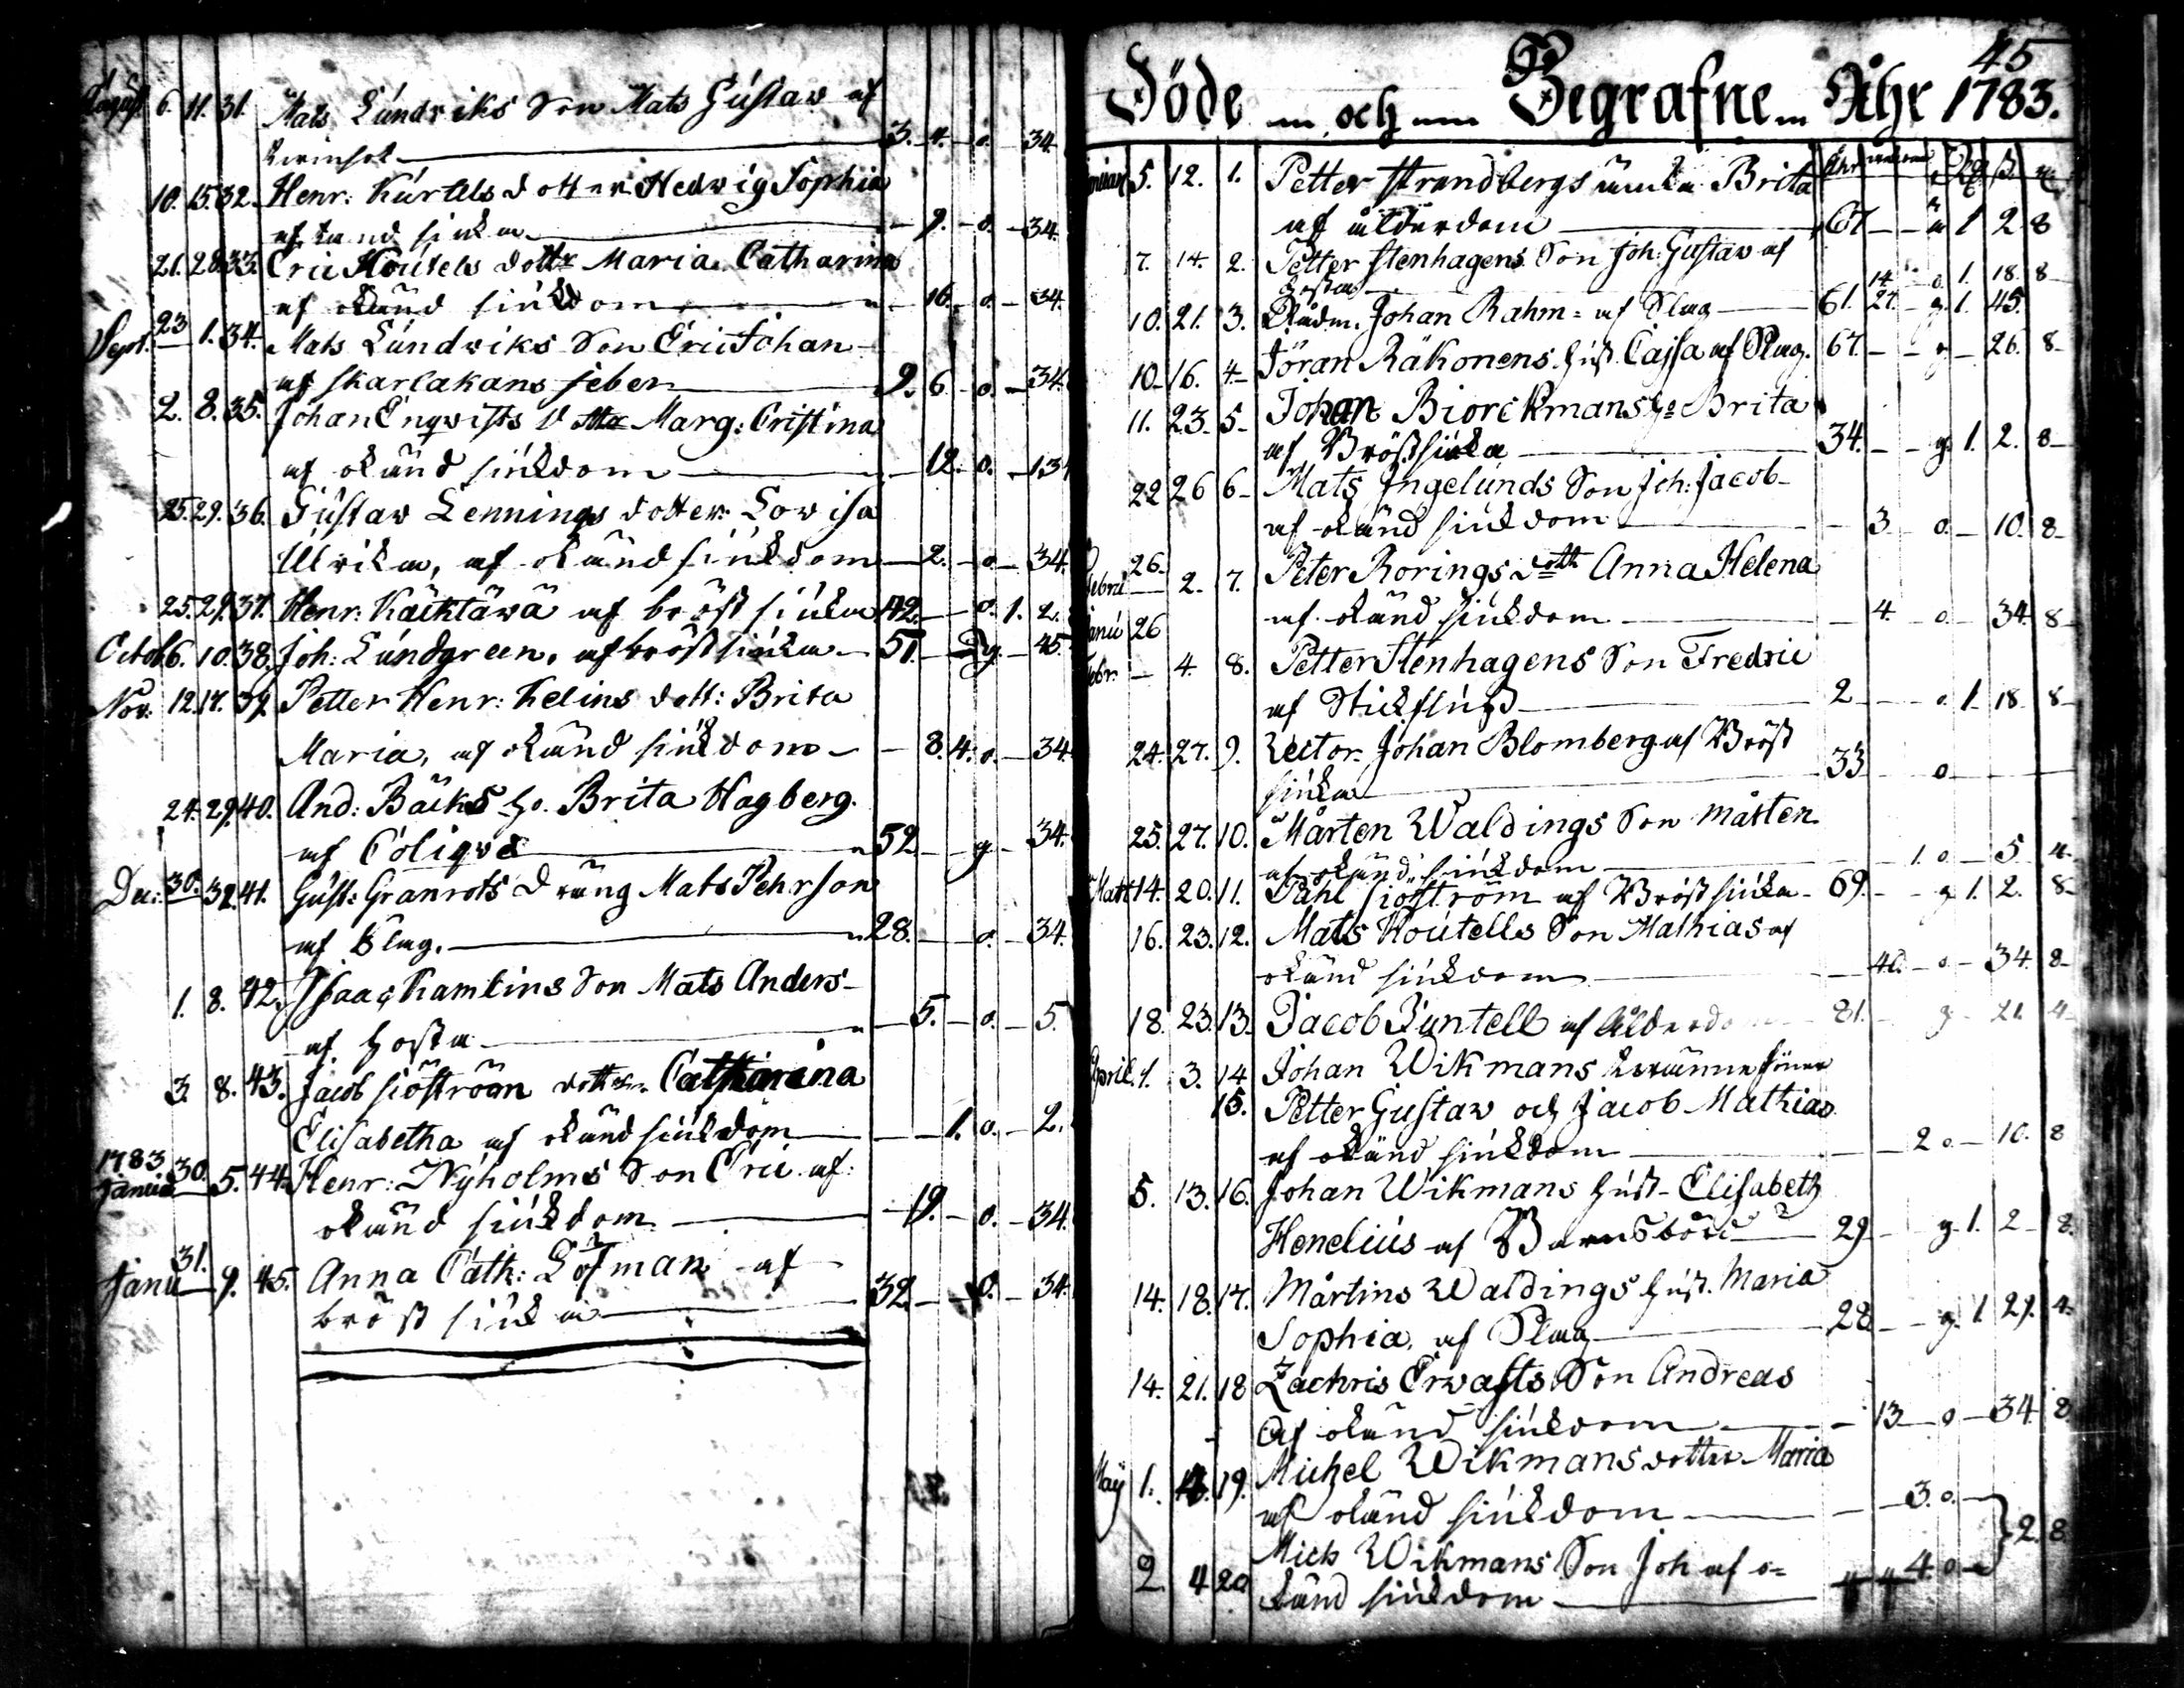 August 6. 11. 31. Mats Lúndviks Son Mats Gústav af
3. 4. o. 34.
10. 15. 32. Henr: Kúrtels dotter Hedvig Sophia
9. o. 34.
21. 28. 33. Eric Koútels dottr Maria Catharina
af okänd siúkdom 16. o. 34.
Sept. 23 1. 34. Mats Lúndviks Son Eric Johan
af skarlakans feber 9. 6 o. 34.
2. 8. 35. Johan Enqvists Dottr Marg: Cristina
af okänd siúkdom 12. o. 34
25. 29. 36. Gústav Lennings dotter Lovisa
Ulrika, af okänd siúkdom 2. o. 34.
25. 29. 37. Henr: Käcktäwä af bröst siúka 42. o. 1. 2.
Octob 6. 10. 38. Joh: Lúndgreen, af bröstsiúka 51. g. 45.
Nov: 12. 17. 39. Petter Henr: Kelins dott: Brita
Maria, af okänd siúkdom 8. 4. o. 34.
24. 29. 40. And: Bäcks h: Brita Hagberg.
af Coliqve 52 g. 34.
Dec: 30. 41. Gúst: Granrots Dräng Mats Pehrson
af Slag. 28. o. 34.
1. 8. 42. Isaac Kamlins Son Mats Anders
af hosta 5. o. 5.
3. 8. 43. Jacob siöström dotter Catharina
Elisabetha af okänd siúkdom 1. o. 2.
1783
Janúa 30. 5. 44. Henr: Nÿholms Son Eric af
okänd siúkdom 19. o. 34.
Janú 31. 9. 45. Anna Cath: Löfman af
bröst siúka 32. o. 34.
45
Döde och Begrafne Åhr 1783.
Januari 5. 12. 1. Petter Strandbergs änka Brita
af ålderdom 67 1 2 8
7. 14. 2. Petter Stenhagens Son Joh: Gústav af
hosta 14 o. 1. 18. 8
10. 21. 3. Rådm. Johan Rahm af Slag 61. 27. g. 1. 45.
10. 16. 4. Jöran Räkonens húst. Cajsa af Slag. 67. g 26. 8
11. 23. 5. Johan Biorckmans h: Brita
af Bröstsiúka 34. g. 1. 2. 8
22 26 6. Mats Ingelúnds Son Joh: Jacob
af okänd siúkdom 3 o. 10. 8
26.
Febru 2. 7. Peter Rorings dottr Anna Helena
af okänd siúkdom 4. o. 34. 8
Janú 26
Febr: 4. 8. Petter Stenhagens Son Fredric
af Stickflúss 2 o. 1. 18 8
24. 27. 9. Rector Johan Blomberg af Bröst
siúka 33 o
25. 27. 10. Mårten Waldings Son Mårten
af okänd siúkdom 1. o 5 4.
Mart 14. 20. 11. Påhl siöström af Bröst siúka 69. g 1. 2. 8
16. 23. 12. Mats Koútells Son Mathias af
okänd siúkdom o. 34. 8
18. 23. 13. Jacob Júntell af Ålderdom 81. g 21. 4
April 1. 3. 14 Johan Wikmans
15. Petter Gústav och Jacob Mathias
af okänd siúkdom 2 o 10. 8
5. 13. 16. Johan Wikmans húst. Elisabeth
Henelius af Barnsbörd 29 g. 1. 2 8.
14. 18. 17. Mårtins Waldings húst. Maria
Sophia, af Slag 28 g. 1. 29. 4.
14. 21. 18 Zachris Erwasts Son Andreas
af okänd siúkdom 13 o 34 8
Maÿ 1. 19. Michel Wikmans dotter Maria
af okänd siúkdom 3. o. 2. 8
2 4 20 Mich Wikmans Son Joh af o=
känd siúkdom 4. o